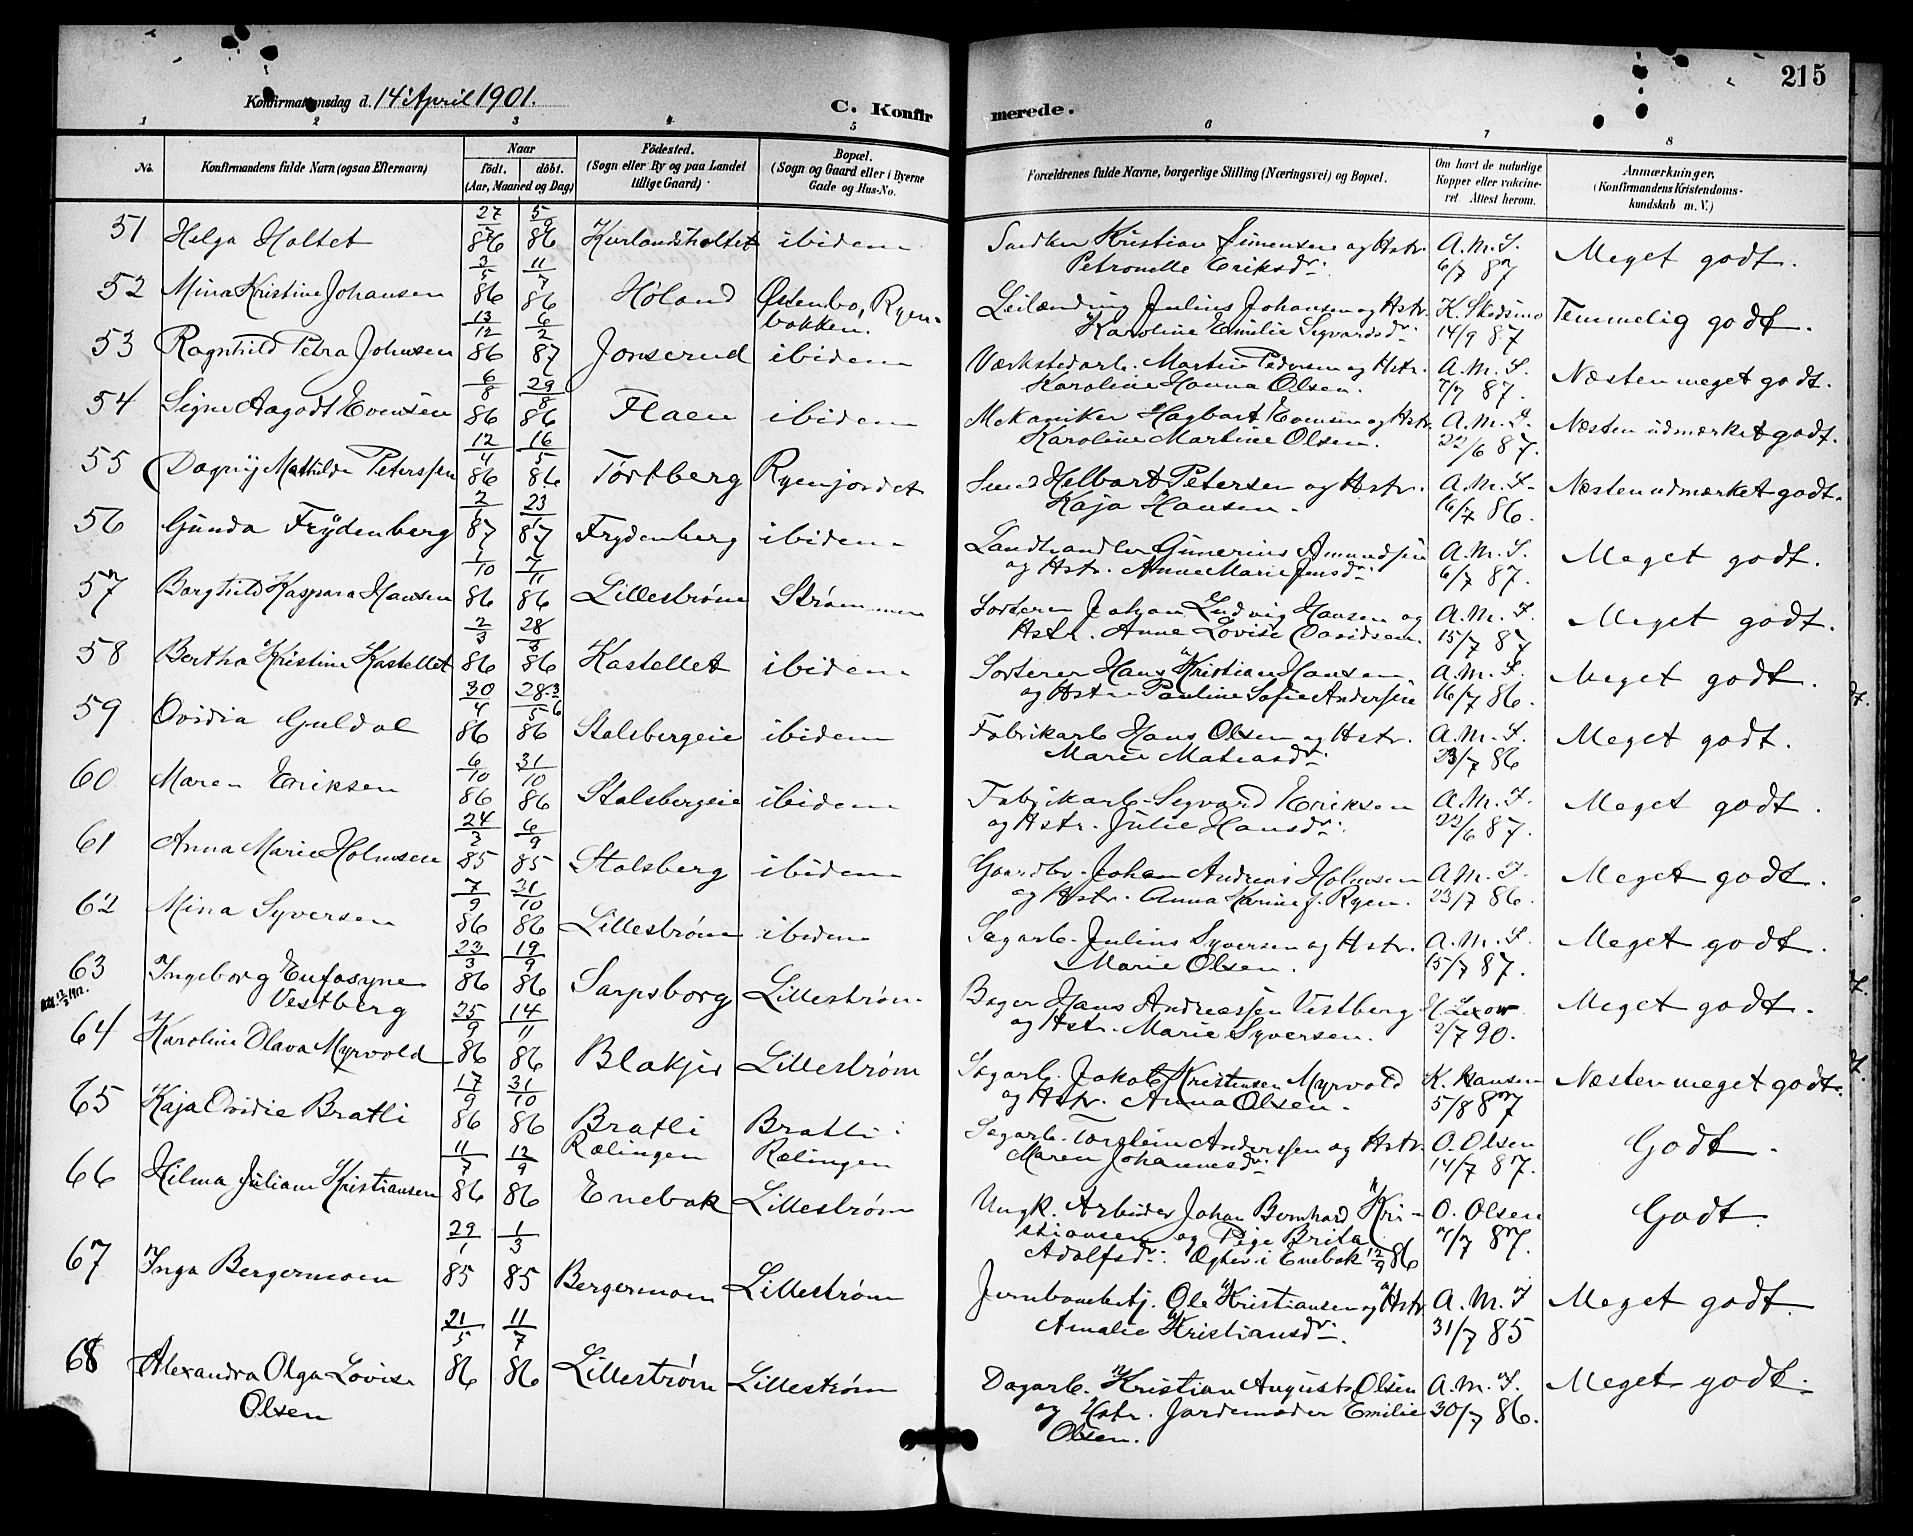 215
Konfirmationsdag d. 14 April 1901.
C. Konfir merede.
1 2 3 4 5 6 7 8
No. Konfirmandens fulde Navn (ogsaa Efternavn) Naar født. døbt. (Aar, Maaned og Dag) Fødested. (Sogn eller By og paa Landet tillige Gaard) Bopæl. (Sogn og Gaard eller i Byerne Gade og Hus-No. Forældrenes fulde Navne, borgerlige Stilling (Næringsvei) og Bopæl. Om havt de naturlige Kopper eller vakcineret. Attest herom. Anmerkninger, (Konfirmandens Kristendomskundskab m. V.)
51 Helga Holtet 27/7 86 5/9 86 Kurlandsholtet ibidem Snedker Kristian Simensen og Hstr. A.M.S. Meget godt.
Petronelle Eriksdr. 6/7 87
52 Mina Kristine Johansen 3/5 86 11/7 86 Høland Østenbo, Ryen- Leilænding Julius Johansen og Hstr. K. Skedsmo Temmelig godt.
bakken. Karoline Emilie Sigvardsdr. 14/9 87
53 Ragnhild Petra Johnsen 13/12 86 6/2 87 Jonserud ibidem Værkstedarb. Martin Pedersen og Hstr. A.M.S. Næsten meget godt.
Karoline Hanna Olsen. 7/7 87.
54 Signe Aagodt Evensen 6/8 86 29/8 86 Flaen ibidem Mekaniker Hagbart Evensen og Hstr. A.M.S. Næsten udmærket godt.
Karoline Martine Olsen. 22/6 87.
55 Dagny Mathilde Peterssen 12/4 86 16/5 86 Tortberg Ryenjordet Smed Helbart Petersen og Hstr. A.M.S. Næsten udmærket godt.
Kaja Hansen. 16/7 86.
56 Gunda Frydenberg 2/1 87 23/1 87 Frydenberg ibidem Landhandler Gunerius Amundsen A.M.S. Meget godt.
og Hstr. Anne Marie Jensdr. 6/7 87.
57 Borghild Kaspara Hansen 1/10 86 7/11 86 Lillestrøm Strømmen Sorterer Johan Ludvig Hansen og A.M.S. Meget godt.
Hstr. Anne Lovise Davidsen. 15/7 87
58 Bertha Kristine Kastellet 2/3 86 28/3 86 Kastellet ibidem Sorterer Hans Kristian Hansen A.M.S. Meget godt.
og Hstr. Pauline Sofie Andersen 16/7 86.
59 Ovidia Guldal 30/4 86 28/5 86 Stalsbergeie ibidem Fabrikarb. Hans Olsen og Hstr. A.M.S. Meget godt.
Marie Matiasdr. 23/7 86
60 Maren Eriksen 6/10 86 31/10 86 Stalsbergeie ibidem Fabrikarb. Segvard Eriksen A.M.S. Meget godt.
og Hstr. Julie Hansdr. 22/6 87.
61 Anna Marie Holmsen 24/2 85 6/9 85 Stalsberg ibidem Gaardbr. Johan Andreas Holmsen A.M.S. Meget godt.
og Hstr. Anna Marine f. Ryen. 23/7 86.
62 Mina Syversen 7/9 86 31/10 86 Lillestrøm ibidem Sagarb. Julius Syversen og Hstr. A.M.S. Meget godt.
Marie Olsen. 15/7 87.
63 Ingeborg Eufosyne 23/3 86 19/9 86 Sarpsborg Lillestrøm Bager Hans Andreassen Vestberg Lexow Meget godt.
Vestberg og Hstr. Marie Syversen. 2/7 90.
64 Karoline Olava Myrvold 25/9 86 14/11 86 Blakjer Lillestrøm Sagarb. Jakob Kristensen Myrvold K. Hansen Næsten meget godt.
og Hstr. Anna Olsen. 5/8 87
65 Kaja Ovidie Bratli 17/9 86 31/10 86 Bratli Bratli i Sagarb. Torstein Anderssen og Hstr. O. Olsen Godt.
Rælingen Rælingen Maren Johannesdr. 14/7 87.
66 Hilma Juliane Kristiansen 11/7 86 12/9 86 Enebak Lillestrøm Ungk. Arbeider Johan Bernhard Kri- O. Olsen Godt.
stiansen og Pige Brita 7/7 87.
Adolfsdr. Ophev. i Enebak 12/9 86
67 Inga Bergermoen 29/1 85 1/3 85 Bergermoen Lillestrøm Jernbanebetj. Ole Kristiansen og Hstr. A.M.S Meget godt.
Amalie Kristiansdr. 31/7 85
68 Alexandra Olga Lovise 21/5 86 11/7 86 Lillestrøm Lillestrøm Dagarb. Kristian August Olsen A.M.S. Meget godt.
Olsen og Hstr. Jordemoder Emilie 30/7 86.
Olsen.